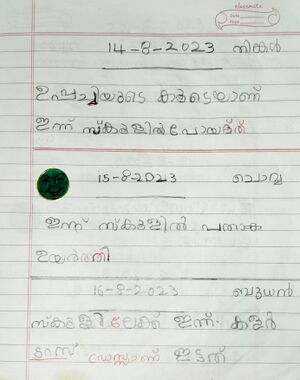 classmate
Date
Page
14-8-2023 തിങ്കൾ
ഉപ്പച്ചിയുടെ കൂടെയാണ്
ഇന്ന് സ്കൂളിൽ പോയത്
15-8-2023 ചൊവ്വ
ഇന്ന് സ്കൂളിൽ പതാക
ഉയർത്തി
16-8-2023 ബുധൻ
സ്കൂളിലേക്ക് ഇന്ന് കളർ
ഡ്രസ്സാണ് ഇട്ടത്